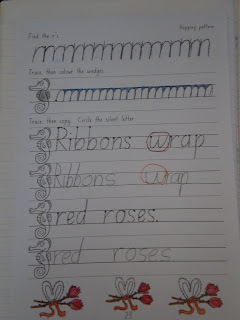 Find the r's Hopping pattern
Trace, then colour the wedges.
Trace, then copy. Circle the silent letter.
Ribbons wrap
Ribbons wrap
red roses.
red roses.